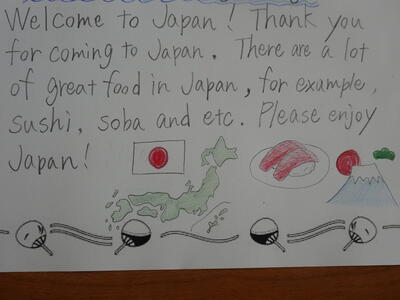 Welcome to Japan! Thank you
for coming to Japan. There are a lot
of great food in Japan, for example,
sushi, soba and etc. Please enjoy
Japan!